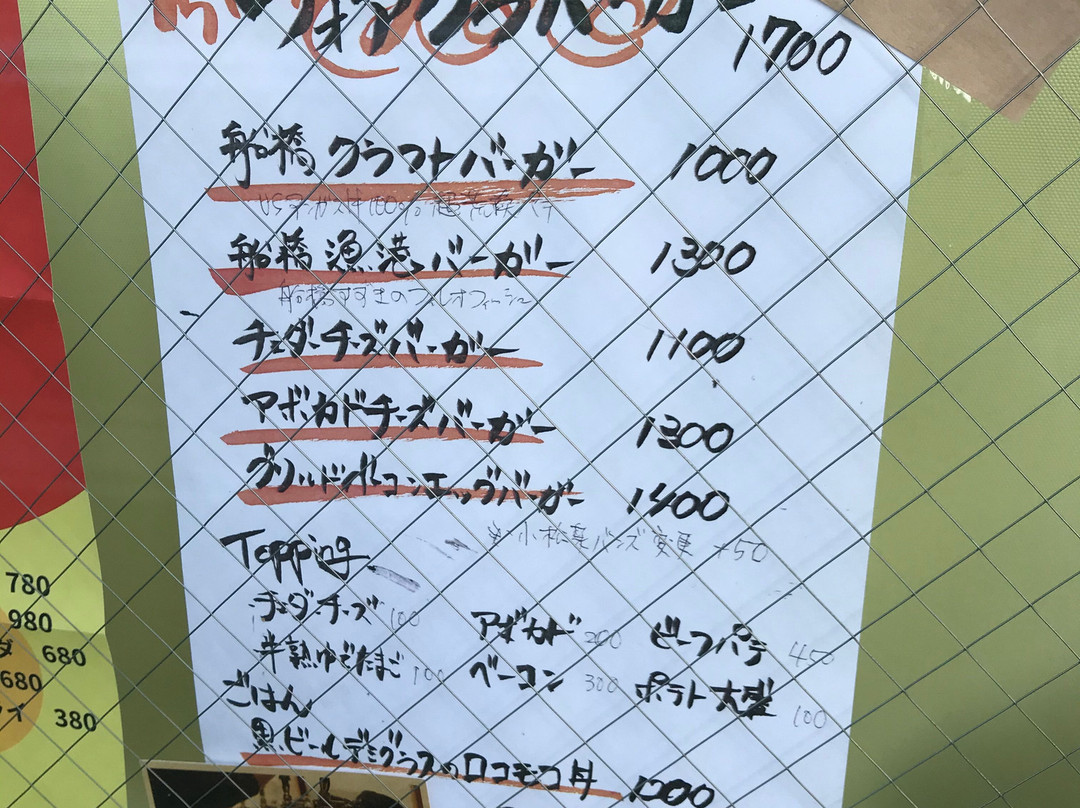 フォアグラバーガー 1700
船橋クラフトバーガー 1000
船橋漁港バーガー 1300
船橋すずきのフィレオフィッシュ
チェダーチーズバーガー 1100
アボカドチーズバーガー 1300
グリルドベーコンエッグバーガー 1400
小松菜バンズ変更 +50
Topping
チェダーチーズ 100 アボカド 200 ビーフパテ 450
半熟ゆでたまご 100 ベーコン 300 ポテト大盛 100
ごはん
黒ビールデミグラスのロコモコ丼 1000
780
980
ダ 680
680
380